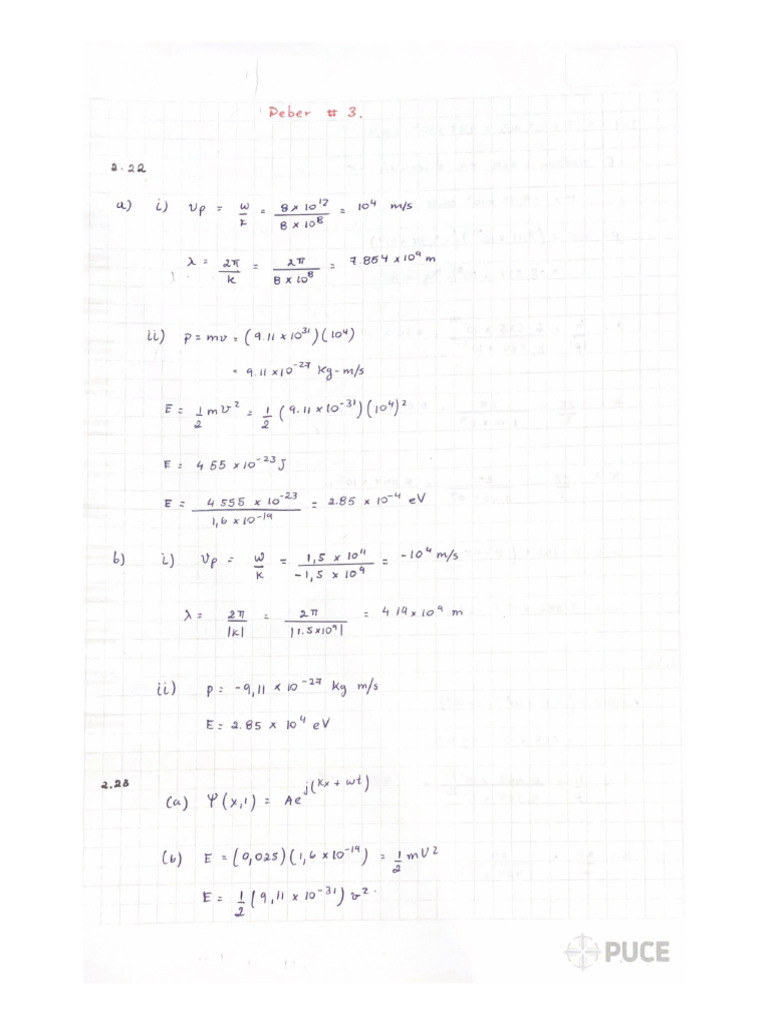 Deber # 3.
2.22
a) i) Vp = w/k = 8 x 10^12 / 8 x 10^8 = 10^4 m/s
λ = 2π/k = 2π / 8 x 10^8 = 7.854 x 10^9 m
ii) p = mv = (9.11 x 10^31)(10^4)
= 9.11 x 10^-27 kg-m/s
E = 1/2 mv^2 = 1/2 (9.11 x 10^-31)(10^4)^2
E = 4 55 x 10^-23 J
E = 4 555 x 10^-23 / 1,6 x 10^-19 = 2.85 x 10^-4 eV
b) i) Vp = w/k = 1,5 x 10^11 / -1,5 x 10^9 = -10^4 m/s
λ = 2π/|k| = 2π / |1.5x10^9| = 4 19 x 10^9 m
ii) p = -9,11 x 10^-27 kg m/s
E = 2.85 x 10^4 eV
2.23
(a) Ψ(x,1) = Ae^j(kx + wt)
(b) E = (0,025)(1,6 x 10^-19) = 1/2 mV^2
E = 1/2 (9,11 x 10^-31) v^2.
PUCE